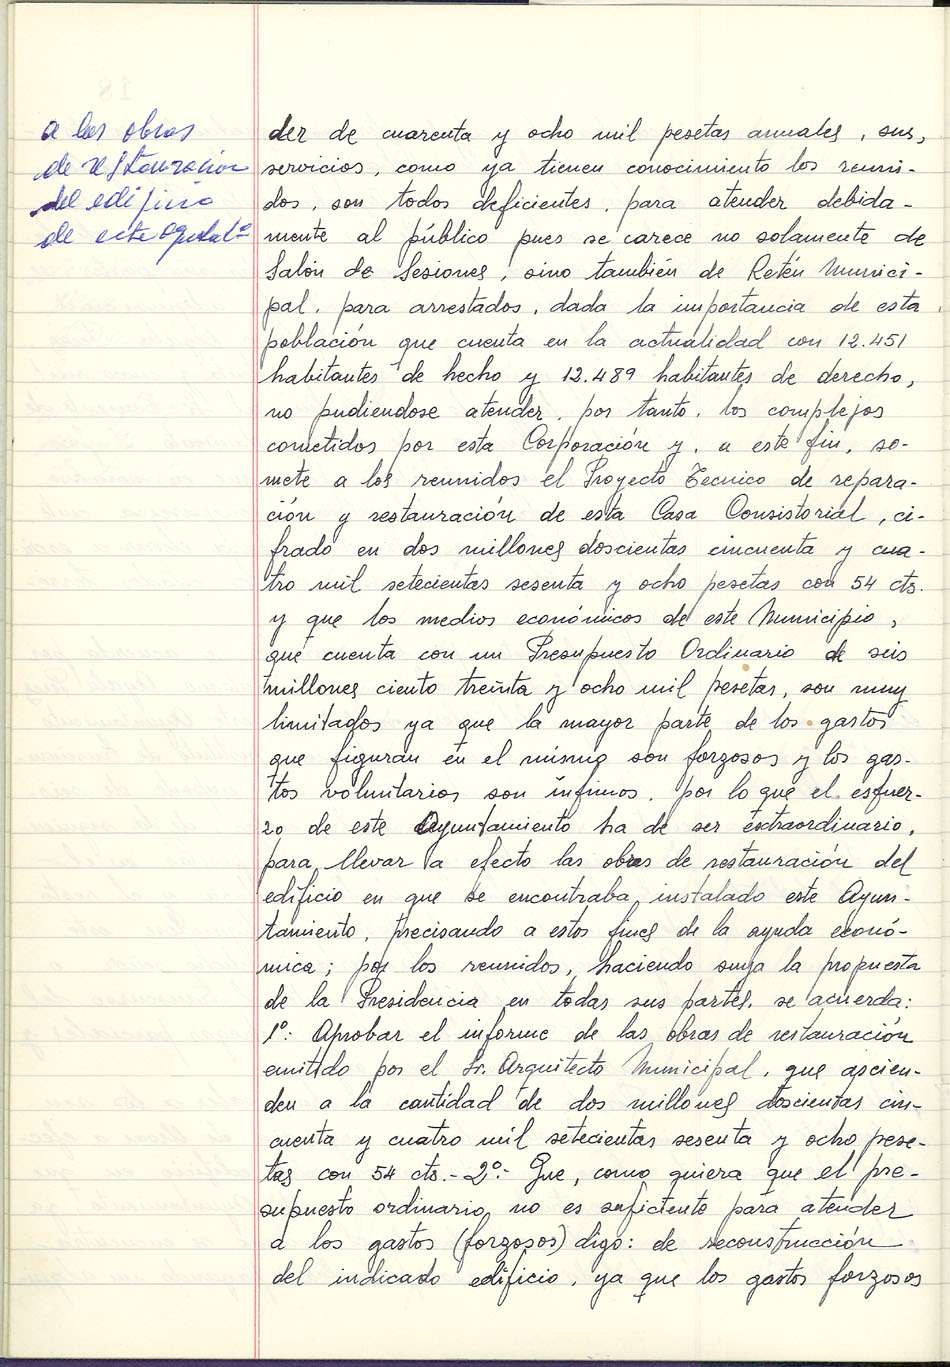 a las obras
de restauración
del edificio
de este
der de cuarenta y ocho mil pesetas anuales, sus,
servicios, como ya tienen conocimiento los reuni-
dos, son todos deficientes, para atender debida-
mente al público pues se carece no solamente de
Salón de Sesiones, sino también de Retén Munici-
pal, para arrestados, dada la importancia de esta
población que cuenta en la actualidad con 12.451
habitantes de hecho y 12.489 habitantes de derecho,
no pudiendose atender, por tanto, los complejos
cometidos por esta Corporación y, a este fin, so-
mete a los reunidos el Proyecto Tecnico de repara-
ción y restauración de esta Casa Consistorial, ci-
frado en dos millones doscientas cincuenta y cua-
tro mil setecientas sesenta y ocho pesetas con 54 cts.
y que los medios económicos de este Municipio,
que cuenta con un Presupuesto Ordinario de seis
millones ciento treinta y ocho mil pesetas, son muy
limitados ya que la mayor parte de los gastos
que figuran en el mismo son forzosos y los gas-
tos voluntarios son ínfimos, por lo que el esfuer-
zo de este Ayuntamiento ha de ser extraordinario,
para llevar a efecto las obras de restauración del
edificio en que se encontraba instalado este Ayun-
tamiento, precisando a estos fines de la ayuda econó-
mica; por los reunidos, haciendo suya la propuesta
de la Presidencia en todas sus partes, se acuerda:
1º: Aprobar el informe de las obras de restauración
emitido por el Sr. Arquitecto Municipal, que ascien-
den a la cantidad de dos millones doscientas cin-
cuenta y cuatro mil setecientas sesenta y ocho pese-
tas con 54 cts.- 2º:- Que, como quiera que el pre-
supuesto ordinario, no es suficiente para atender
a los gastos (forzosos) digo: de reconstrucción
del indicado edificio, ya que los gastos forzosos